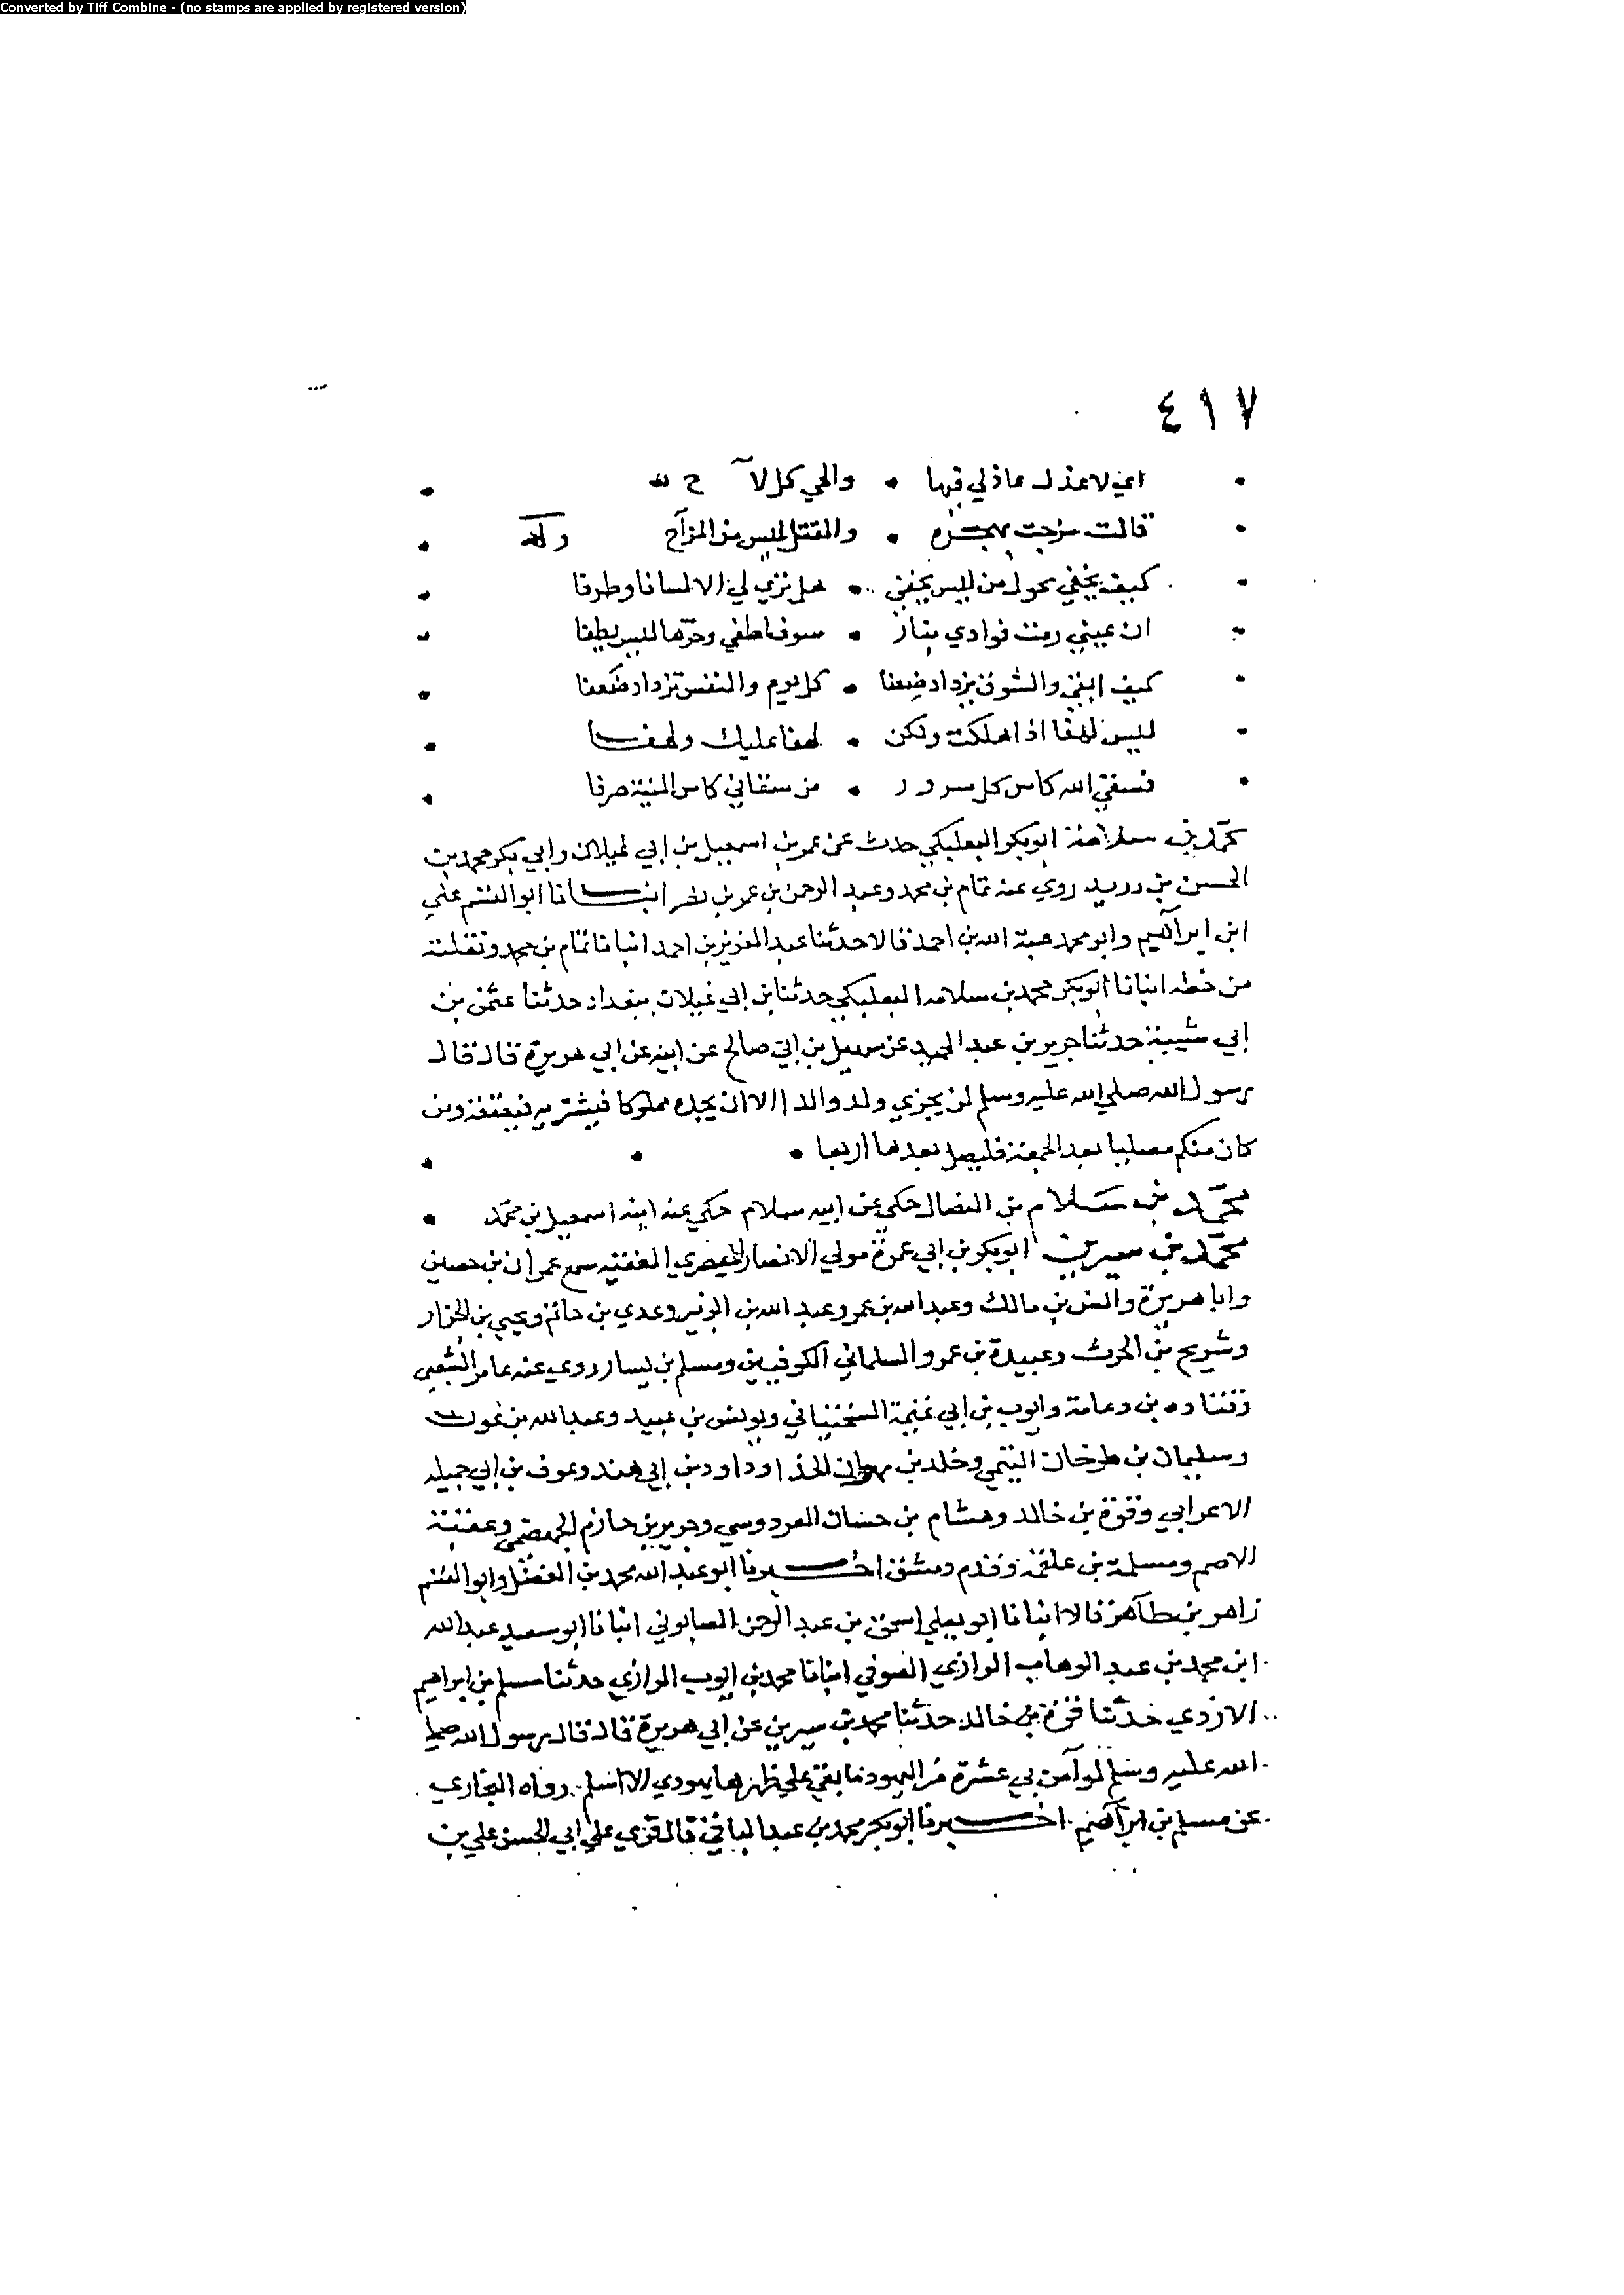 Converted by Tiff Combine - (no stamps are applied by registered version)
٤١٧
اني لاعذل عاذلي فيها • والحي كل لاح
قالت مزجت • والقتل ليس من المزاح وله
كيف يخفي نحول من ليس يخفى • هل تري لي الا لسانا وطرفا
ان عيني رمت فوادي بنار • سوف اطفي وحرها ليس يطفا
كيف ابقى والشوق يزداد ضعفا • كل يوم والنفس تزداد ضعفا
ليس لهفا اذا هلكت ولكن • لهفا عليك ولهفا
فسقى الله كاس كل سرور • من سقاني كاس المنية صرفا
محمد بن سلامة ابو بكر البعلبكي حدث عن عمر بن اسمعيل بن ابي غيلان وابي بكر محمد بن
الحسن بن دريد روي عنه تمام بن محمد وعبد الرحمن بن عمر بن نصر انبانا ابو القسم علي
ابن ابراهيم وابو محمد هبة الله بن احمد قالا حدثنا عبد العزيز بن احمد انبانا تمام بن محمد ونقلته
من خطه انبانا ابو بكر محمد بن سلامه البعلبكي حدثنا بن ابي غيلان ببغداد حدثنا عثمن بن
ابي شيبة حدثنا جرير بن عبد الحميد عن سهيل بن ابي صالح عن ابيه عن ابي هريرة قال قال
رسول الله صلي الله عليه وسلم لن يجزي ولد والدا الا ان يجده مملوكا فيشتريه فيعتقه ومن
كان منكم مصليا بعد الجمعة فليصل بعدها اربعا •
محمد بن سلام بن النضال حكي عن ابيه سلام حكي عنه ابنه اسمعيل بن محمد •
محمد بن سيرين ابو بكر بن ابي عمرة مولي الانصار البصري الفقيه سمع عمران بن حصين
وابا هريرة وانس بن مالك وعبد الله بن عمر وعبد الله بن الزبير وعدي بن حاتم ويحيي بن الجزار
وشريح بن الحرث وعبيدة بن عمرو السلماني الكوفيين ومسلم بن يسار روي عنه عامر الشعبي
وقتاده بن دعامة وايوب بن ابي تميمة السختياني ويونس بن عبيد وعبد الله بن عون
وسليمان بن طرخان التيمي وخلد بن مهران الحذا وداود بن ابي هند وعوف بن ابي جميله
الاعرابي وقرة بن خالد وهشام بن حسان القردوسي وجرير بن حازم الجهضمي وعقبة
الاصم ومسلمة بن علقمة وقدم دمشق اخبرنا ابو عبد الله محمد بن الفضل وابو القسم
زاهر بن طاهر قالا انبانا ابو يعلي اسحق بن عبد الرحمن الصابوني انبانا ابو سعيد عبد الله
ابن محمد بن عبد الوهاب الرازي الصوفي انبانا محمد بن ايوب الرازي حدثنا مسلم بن ابراهيم
الازدي حدثنا قرة بن خالد حدثنا محمد بن سيرين عن ابي هريرة قال قال رسول الله صلي
الله عليه وسلم لو آمن بي عشرة من اليهود ما بقي علي ظهرها يهودي الا اسلم. رواه البخاري
عن مسلم بن ابراهيم. اخبرنا ابو بكر محمد بن عبد الباقي قال قري علي ابي الحسن علي بن